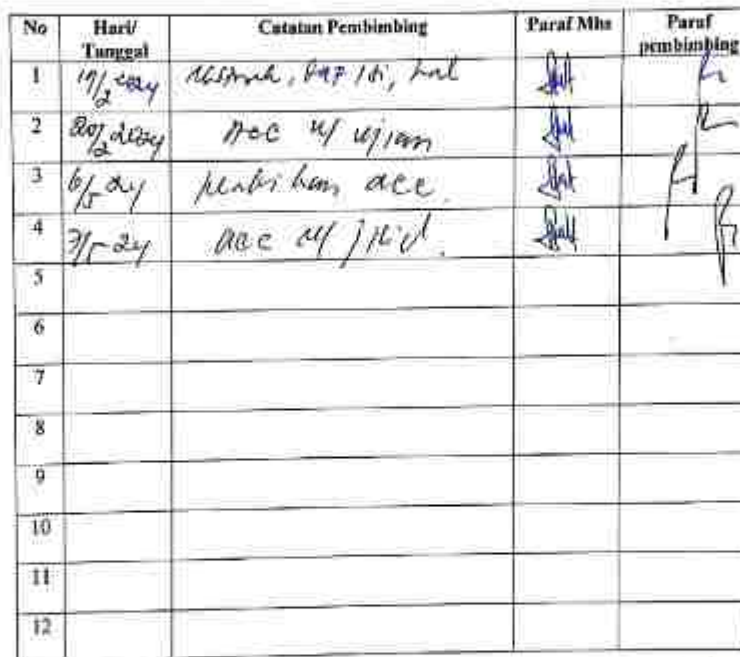 No Hari/ Tanggal Catatan Pembimbing Paraf Mhs Paraf pembimbing
1 19/2 2024
2 20/2 2024 Acc u/ ujian
3 6/5 24 acc
4 7/5 24 acc u/ jilid
5
6
7
8
9
10
11
12